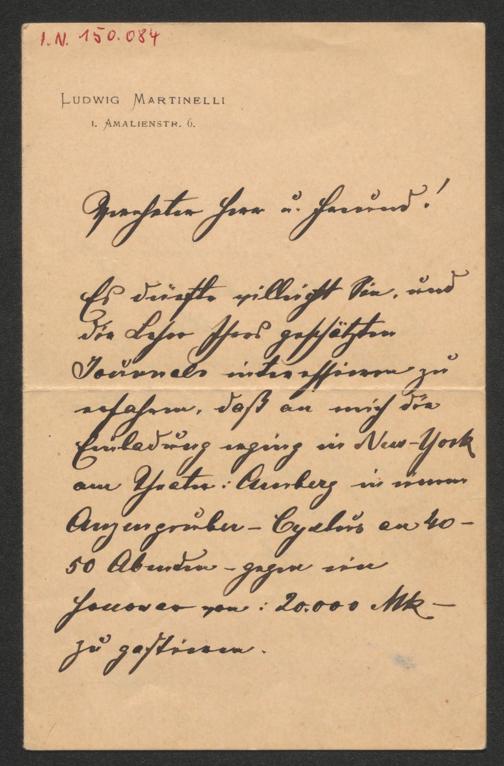 I.N. 150.084
LUDWIG MARTINELLI
I. AMALIENSTR. 6.
Verehrter Herr u. Freund!
Es dürfte villeicht Sie, und
die Leser Ihres geschätzten
Journals interessieren zu
erfahren, daß an mich die
Einladung erging in New-York
am Theater: Amberg in einem
Anzengruber-Cyclus an 40-
50 Abenden - gegen ein
Honorar von: 20.000 Mk -
zu gastieren.